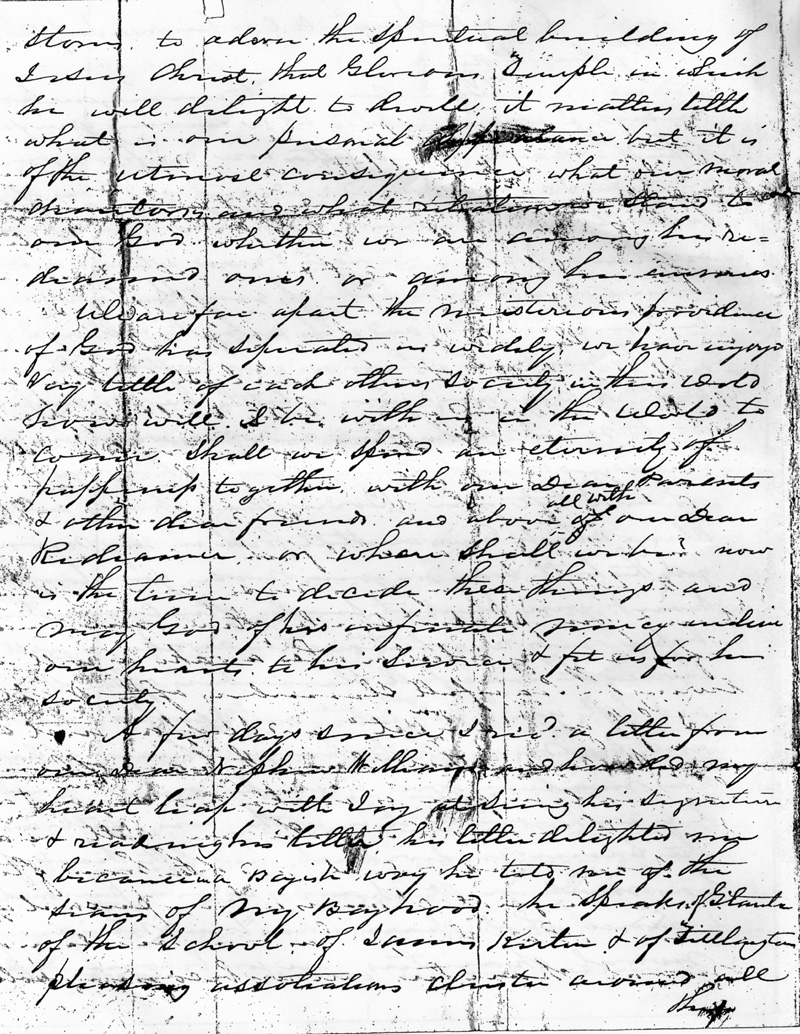 stones to adorn the spiritual building of
Jesus Christ that Glorious Temple in which
he will delight to dwell, it matters little
what is our personal appearance but it is
of the utmost consequence what our moral
and what relation we stand to
our God whether we are among his re=
deamed ones or among his enimies
We are far apart the misterious providence
of God has seperated us widely, we have injoyed
very little of each others Society in this World
how will it be with us in the World to
come shall we spend an eternity of
happiness together with our Dear Parents
& other dear friends and above all with our Dear
Redeamer or where shall we be? now
is the time to decide these things and
may God of his infinate mercy incline
our hearts to his Service & fit us for his
society
A few days since I recd a letter from
our Dear Nephew William and how did my
heart leap with Joy at Seing his Signature
& reading his letter, his letter delighted me
because in a Boyish way he told me of the
scenes of my Boyhood he speaks of
of the School of James & of
pleasing associations cluster around all